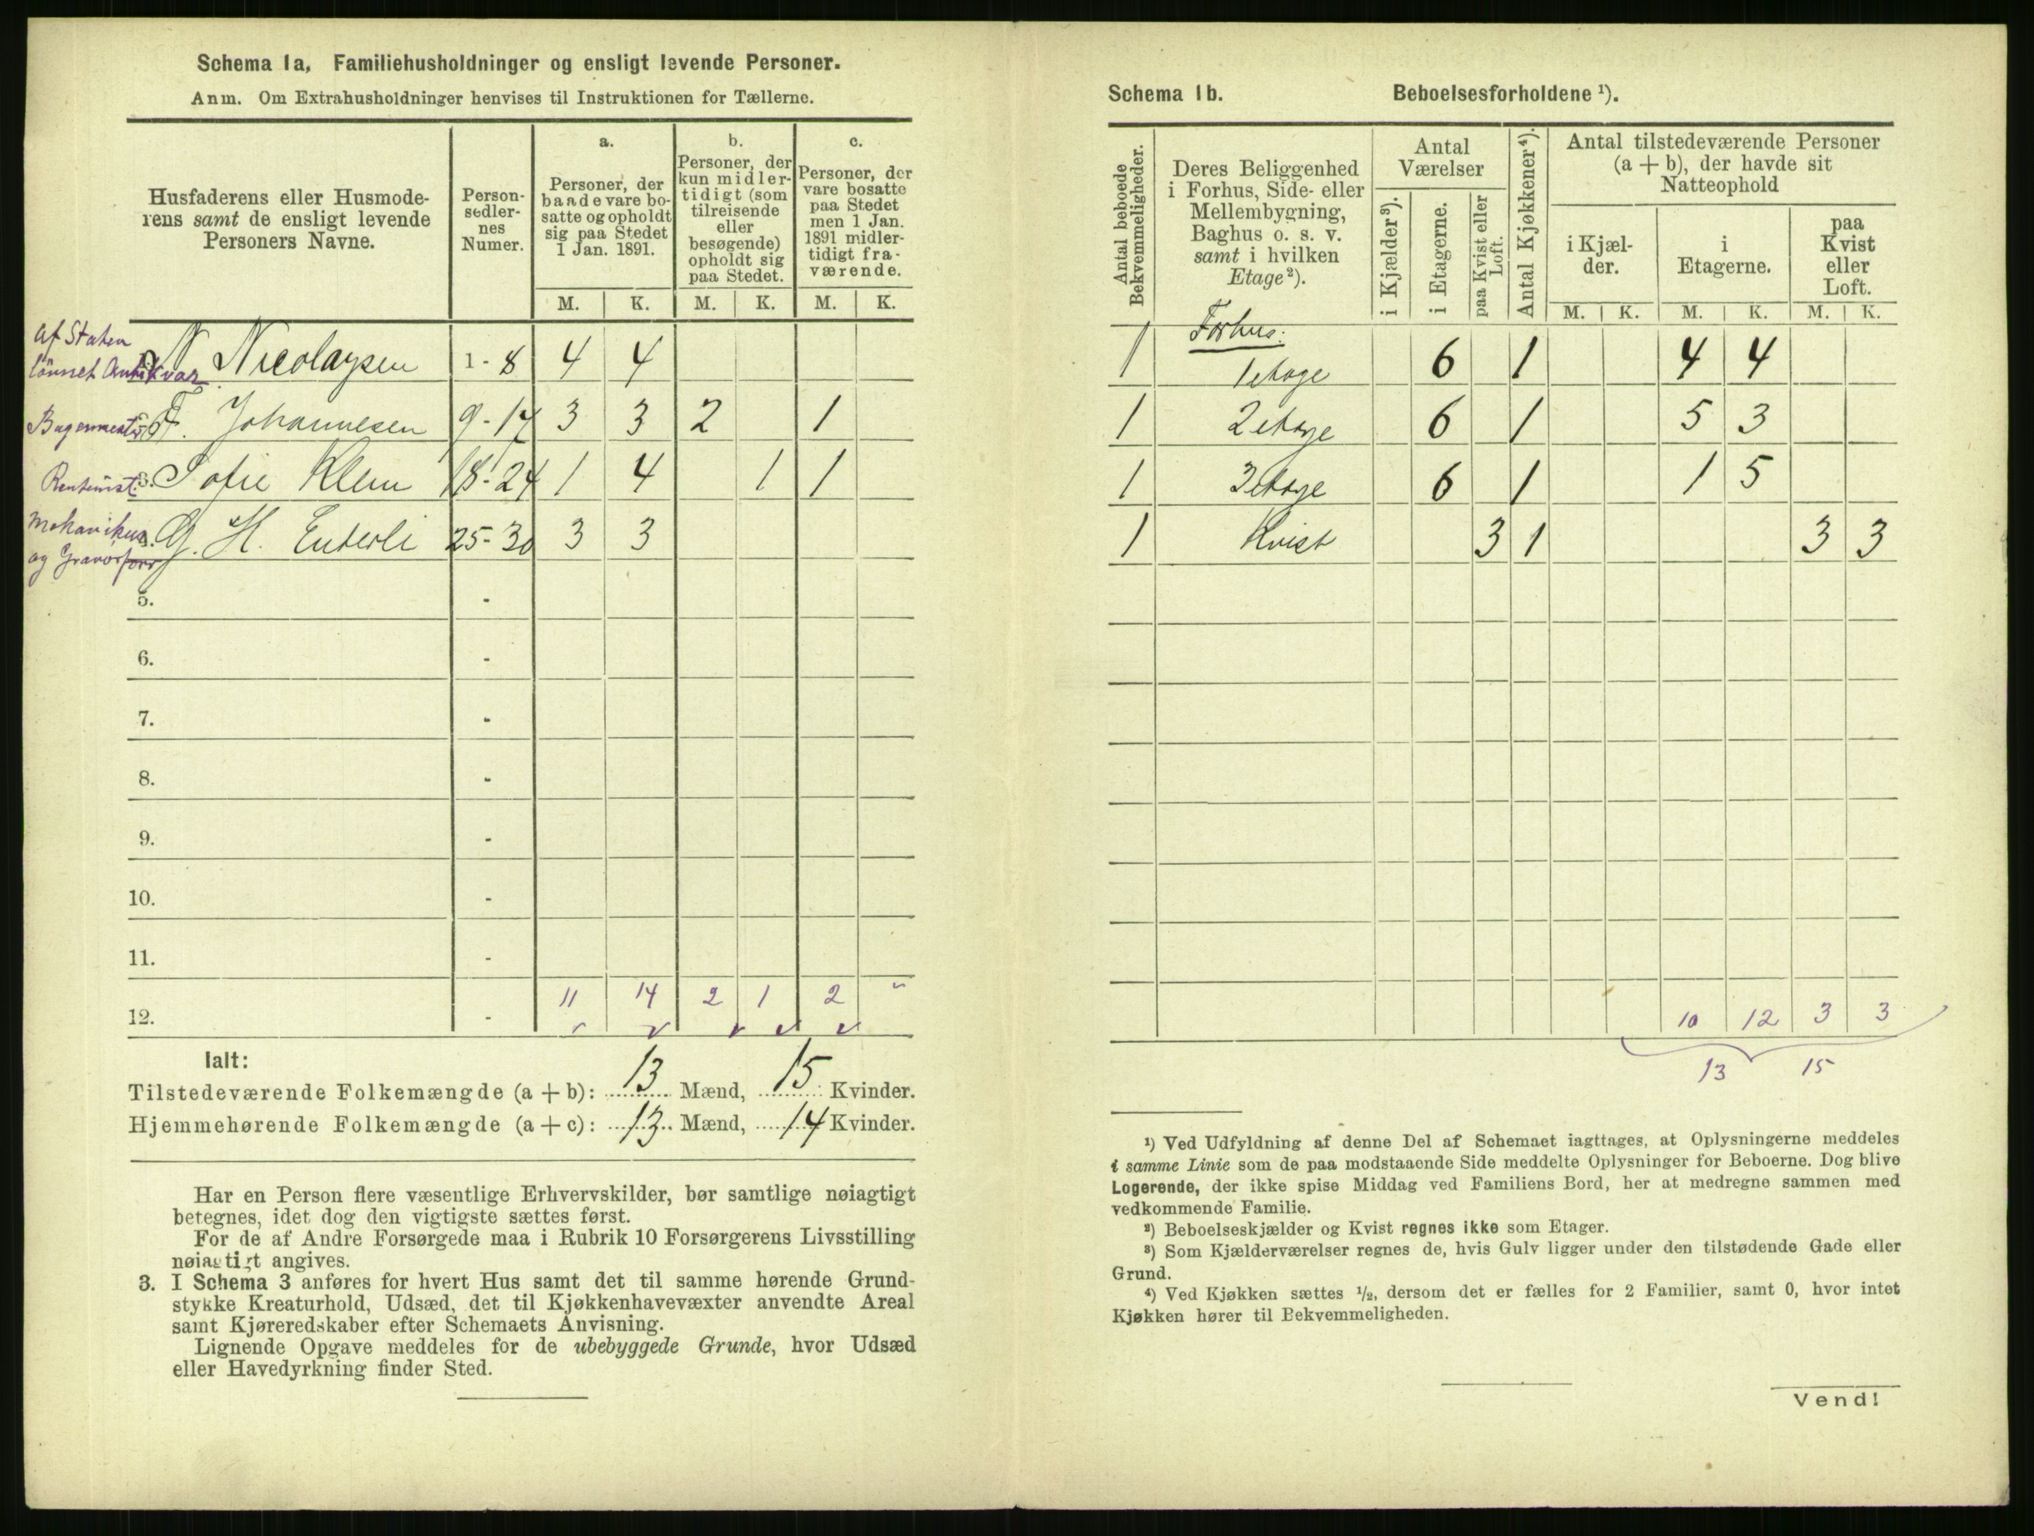 Schema 1a. Familiehusholdninger og ensligt levende Personer.
Anm. Om Extrahusholdninger henvises til Instruktionen for Tællerne.
Husfaderens eller Husmoderens samt de ensligt levende Personers Navne.
Personsedlernes Numer.
a.
Personer, der baade vare bosatte og opholdt sig paa Stedet 1 Jan. 1891.
b.
Personer, der kun midlertidigt (som tilreisende eller besøgende) opholdt sig paa Stedet.
c.
Personer, der vare bosatte paa Stedet men 1 Jan. 1891 midlertidigt fraværende.
M. K. M. K. M. K.
Af Staten
lønnet Antikvar N. Nicolaysen 1 - 8 4 4
Bagermester F. Johannesen 9 - 17 3 3 2 1
Rentenist 3. Sofie Klem 18 - 24 1 4 1 1
Mekanikus
og Gravør G. H. Enderli 25 - 30 3 3
5. -
6. -
7. -
8. -
9. -
10. -
11. -
11 14 2 1 2 "
12. -
Ialt:
Tilstedeværende Folkemængde (a + b): 13 Mænd, 15 Kvinder.
Hjemmehørende Folkemængde (a + c): 13 Mænd, 14 Kvinder.
Har en Person flere væsentlige Erhvervskilder, bør samtlige nøiagtigt
betegnes, idet dog den vigtigste sættes først.
For de af Andre Forsørgede maa i Rubrik 10 Forsørgerens Livsstilling
nøiagtigt angives.
3. I Schema 3 anføres for hvert Hus samt det til samme hørende Grund-
stykke Kreaturhold, Udsæd, det til Kjøkkenhavevæxter anvendte Areal
samt Kjøreredskaber efter Schemaets Anvisning.
Lignende Opgave meddeles for de ubebyggede Grunde, hvor Udsæd
eller Havedyrkning finder Sted.
Schema 1b. Beboelsesforholdene ¹).
Antal beboede Bekvemmeligheder.
Deres Beliggenhed i Forhus, Side- eller Mellembygning, Baghus o. s. v. samt i hvilken Etage²).
Antal Værelser
i Kjælder³).
i Etagerne.
paa Kvist eller Loft.
Antal Kjøkkener⁴).
Antal tilstedeværende Personer (a + b), der havde sit Natteophold
i Kjælder.
i Etagerne.
paa Kvist eller Loft.
M. K. M. K. M. K.
Forhus:
1 1 etage 6 1 4 4
1 2 etage 6 1 5 3
1 3 etage 6 1 1 5
1 Kvist 3 1 3 3
10 12 3 3
13 15
¹) Ved Udfyldning af denne Del af Schemaet iagttages, at Oplysningerne meddeles
i samme Linie som de paa modstaaende Side meddelte Oplysninger for Beboerne. Dog blive
Logerende, der ikke spise Middag ved Familiens Bord, her at medregne sammen med
vedkommende Familie.
²) Beboelseskjælder og Kvist regnes ikke som Etager.
³) Som Kjælderværelser regnes de, hvis Gulv ligger under den tilstødende Gade eller
Grund.
⁴) Ved Kjøkken sættes ½, dersom det er fælles for 2 Familier, samt 0, hvor intet
Kjøkken hører til Bekvemmeligheden.
Vend!